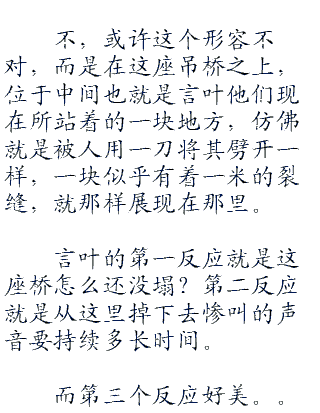 不，或许这个形容不
对，而是在这座吊桥之上，
位于中间也就是言叶他们现
在所站着的一块地方，仿佛
就是被人用一刀将其劈开一
样，一块似乎有着一米的裂
缝，就那样展现在那里。
言叶的第一反应就是这
座桥怎么还没塌？第二反应
就是从这里掉下去惨叫的声
音要持续多长时间。
而第三个反应好美。。